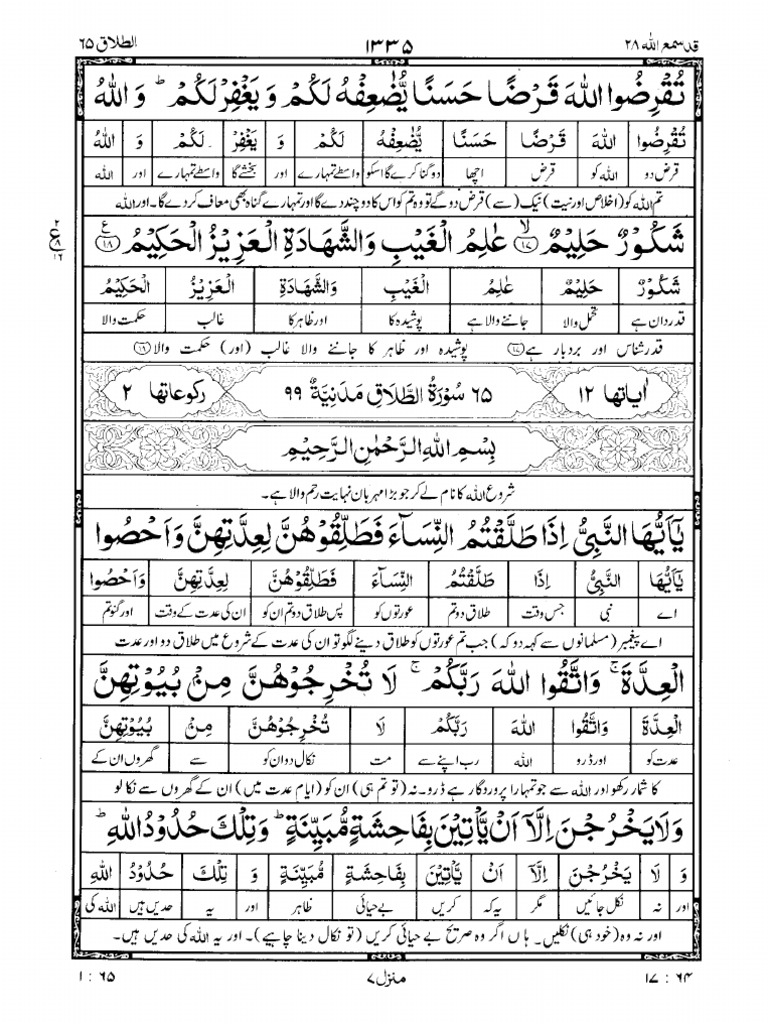 قد سمع الله ۲۸ ۱۳۳۵ الطلاق ۶۵
تُقْرِضُوا اللّٰهَ قَرْضًا حَسَنًا یُّضٰعِفْهُ لَكُمْ وَ یَغْفِرْ لَكُمْ ؕ وَ اللّٰهُ
تُقْرِضُوا اللّٰهَ قَرْضًا حَسَنًا یُّضٰعِفْهُ لَكُمْ وَ یَغْفِرْ لَكُمْ وَ اللّٰهُ
قرض دو اللہ کو قرض اچھا دوگنا کرے گا اسکو واسطے تمہارے اور بخشے گا واسطے تمہارے اور اللہ
تم اللہ کو (اخلاص اور نیت) نیک (سے) قرض دو گے تو وہ تم کو اس کا دو چند دے گا اور تمہارے گناہ بھی معاف کر دے گا۔ اور اللہ
شَكُوْرٌ حَلِیْمٌ ۙ‏﴿۱۷﴾ عٰلِمُ الْغَیْبِ وَالشَّهَادَةِ الْعَزِیْزُ الْحَكِیْمُ ﴿۱۸﴾ ع
۲
۸
۱۶
شَكُوْرٌ حَلِیْمٌ عٰلِمُ الْغَیْبِ وَالشَّهَادَةِ الْعَزِیْزُ الْحَكِیْمُ
قدردان ہے تحمل والا جاننے والا ہے پوشیدہ کا اور ظاہر کا غالب حکمت والا
قدر شناس اور بردبار ہے ﴿۱۷﴾ پوشیدہ اور ظاہر کا جاننے والا غالب (اور) حکمت والا ﴿۱۸﴾
اٰیاتها ۱۲ ۶۵ سُوْرَةُ الطَّلَاقِ مَدَنِیَّةٌ ۹۹ رکوعاتها ۲
بِسْمِ اللّٰهِ الرَّحْمٰنِ الرَّحِیْمِ
شروع اللہ کا نام لے کر جو بڑا مہربان نہایت رحم والا ہے۔
یٰۤاَیُّهَا النَّبِیُّ اِذَا طَلَّقْتُمُ النِّسَآءَ فَطَلِّقُوْهُنَّ لِعِدَّتِهِنَّ وَاَحْصُوا
یٰۤاَیُّهَا النَّبِیُّ اِذَا طَلَّقْتُمُ النِّسَآءَ فَطَلِّقُوْهُنَّ لِعِدَّتِهِنَّ وَاَحْصُوا
اے نبی جس وقت طلاق دو تم عورتوں کو پس طلاق دو تم ان کو ان کی عدت کے وقت اور گنو تم
اے پیغمبر (مسلمانوں سے کہہ دو کہ) جب تم عورتوں کو طلاق دینے لگو تو ان کی عدت کے شروع میں طلاق دو اور عدت
الْعِدَّةَ ۚ وَاتَّقُوا اللّٰهَ رَبَّكُمْ ۚ لَا تُخْرِجُوْهُنَّ مِنْۢ بُیُوْتِهِنَّ
الْعِدَّةَ وَاتَّقُوا اللّٰهَ رَبَّكُمْ لَا تُخْرِجُوْهُنَّ مِنْۢ بُیُوْتِهِنَّ
عدت کو اور ڈرو اللہ رب اپنے سے مت نکال دو ان کو سے گھروں ان کے
کا شمار رکھو اور اللہ سے جو تمہارا پروردگار ہے ڈرو۔ نہ (تو تم ہی) ان کو (ایام عدت میں) ان کے گھروں سے نکالو
وَلَا یَخْرُجْنَ اِلَّاۤ اَنْ یَّاْتِیْنَ بِفَاحِشَةٍ مُّبَیِّنَةٍ ؕ وَتِلْكَ حُدُوْدُ اللّٰهِ ؕ
وَ لَا یَخْرُجْنَ اِلَّاۤ اَنْ یَّاْتِیْنَ بِفَاحِشَةٍ مُّبَیِّنَةٍ وَ تِلْكَ حُدُوْدُ اللّٰهِ
اور نہ نکل جائیں مگر یہ کہ کریں بے حیائی ظاہر اور یہ حدیں ہیں اللہ کی
اور نہ وہ (خود ہی) نکلیں۔ ہاں اگر وہ صریح بے حیائی کریں (تو نکال دینا چاہیے)۔ اور یہ اللہ کی حدیں ہیں۔
۶۴ : ۱۷ منزل ۷ ۶۵ : ۱